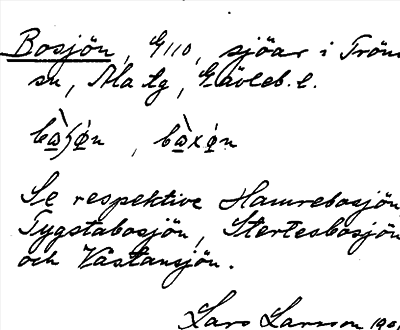 Bosjön, G110, sjöar i Trön
sn, Ala tg, Gävleb. l.
Se respektive Hamrebosjön,
Tygstabosjön, Stertesbosjön
och Västansjön.
Lars Larsson